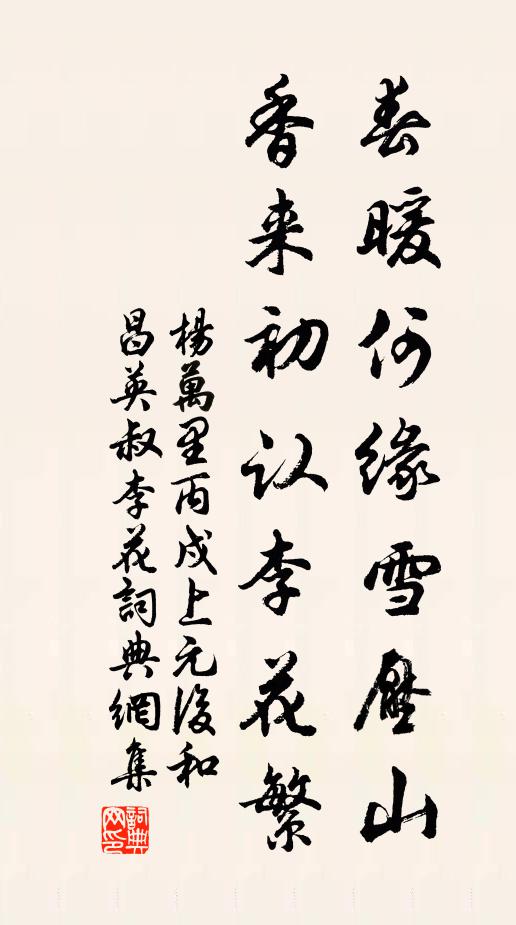 春暖何缘雪壓山
香来初认李花繁
楊萬里丙戌上元後和
昌英叔李花詞典網集
詞典网印